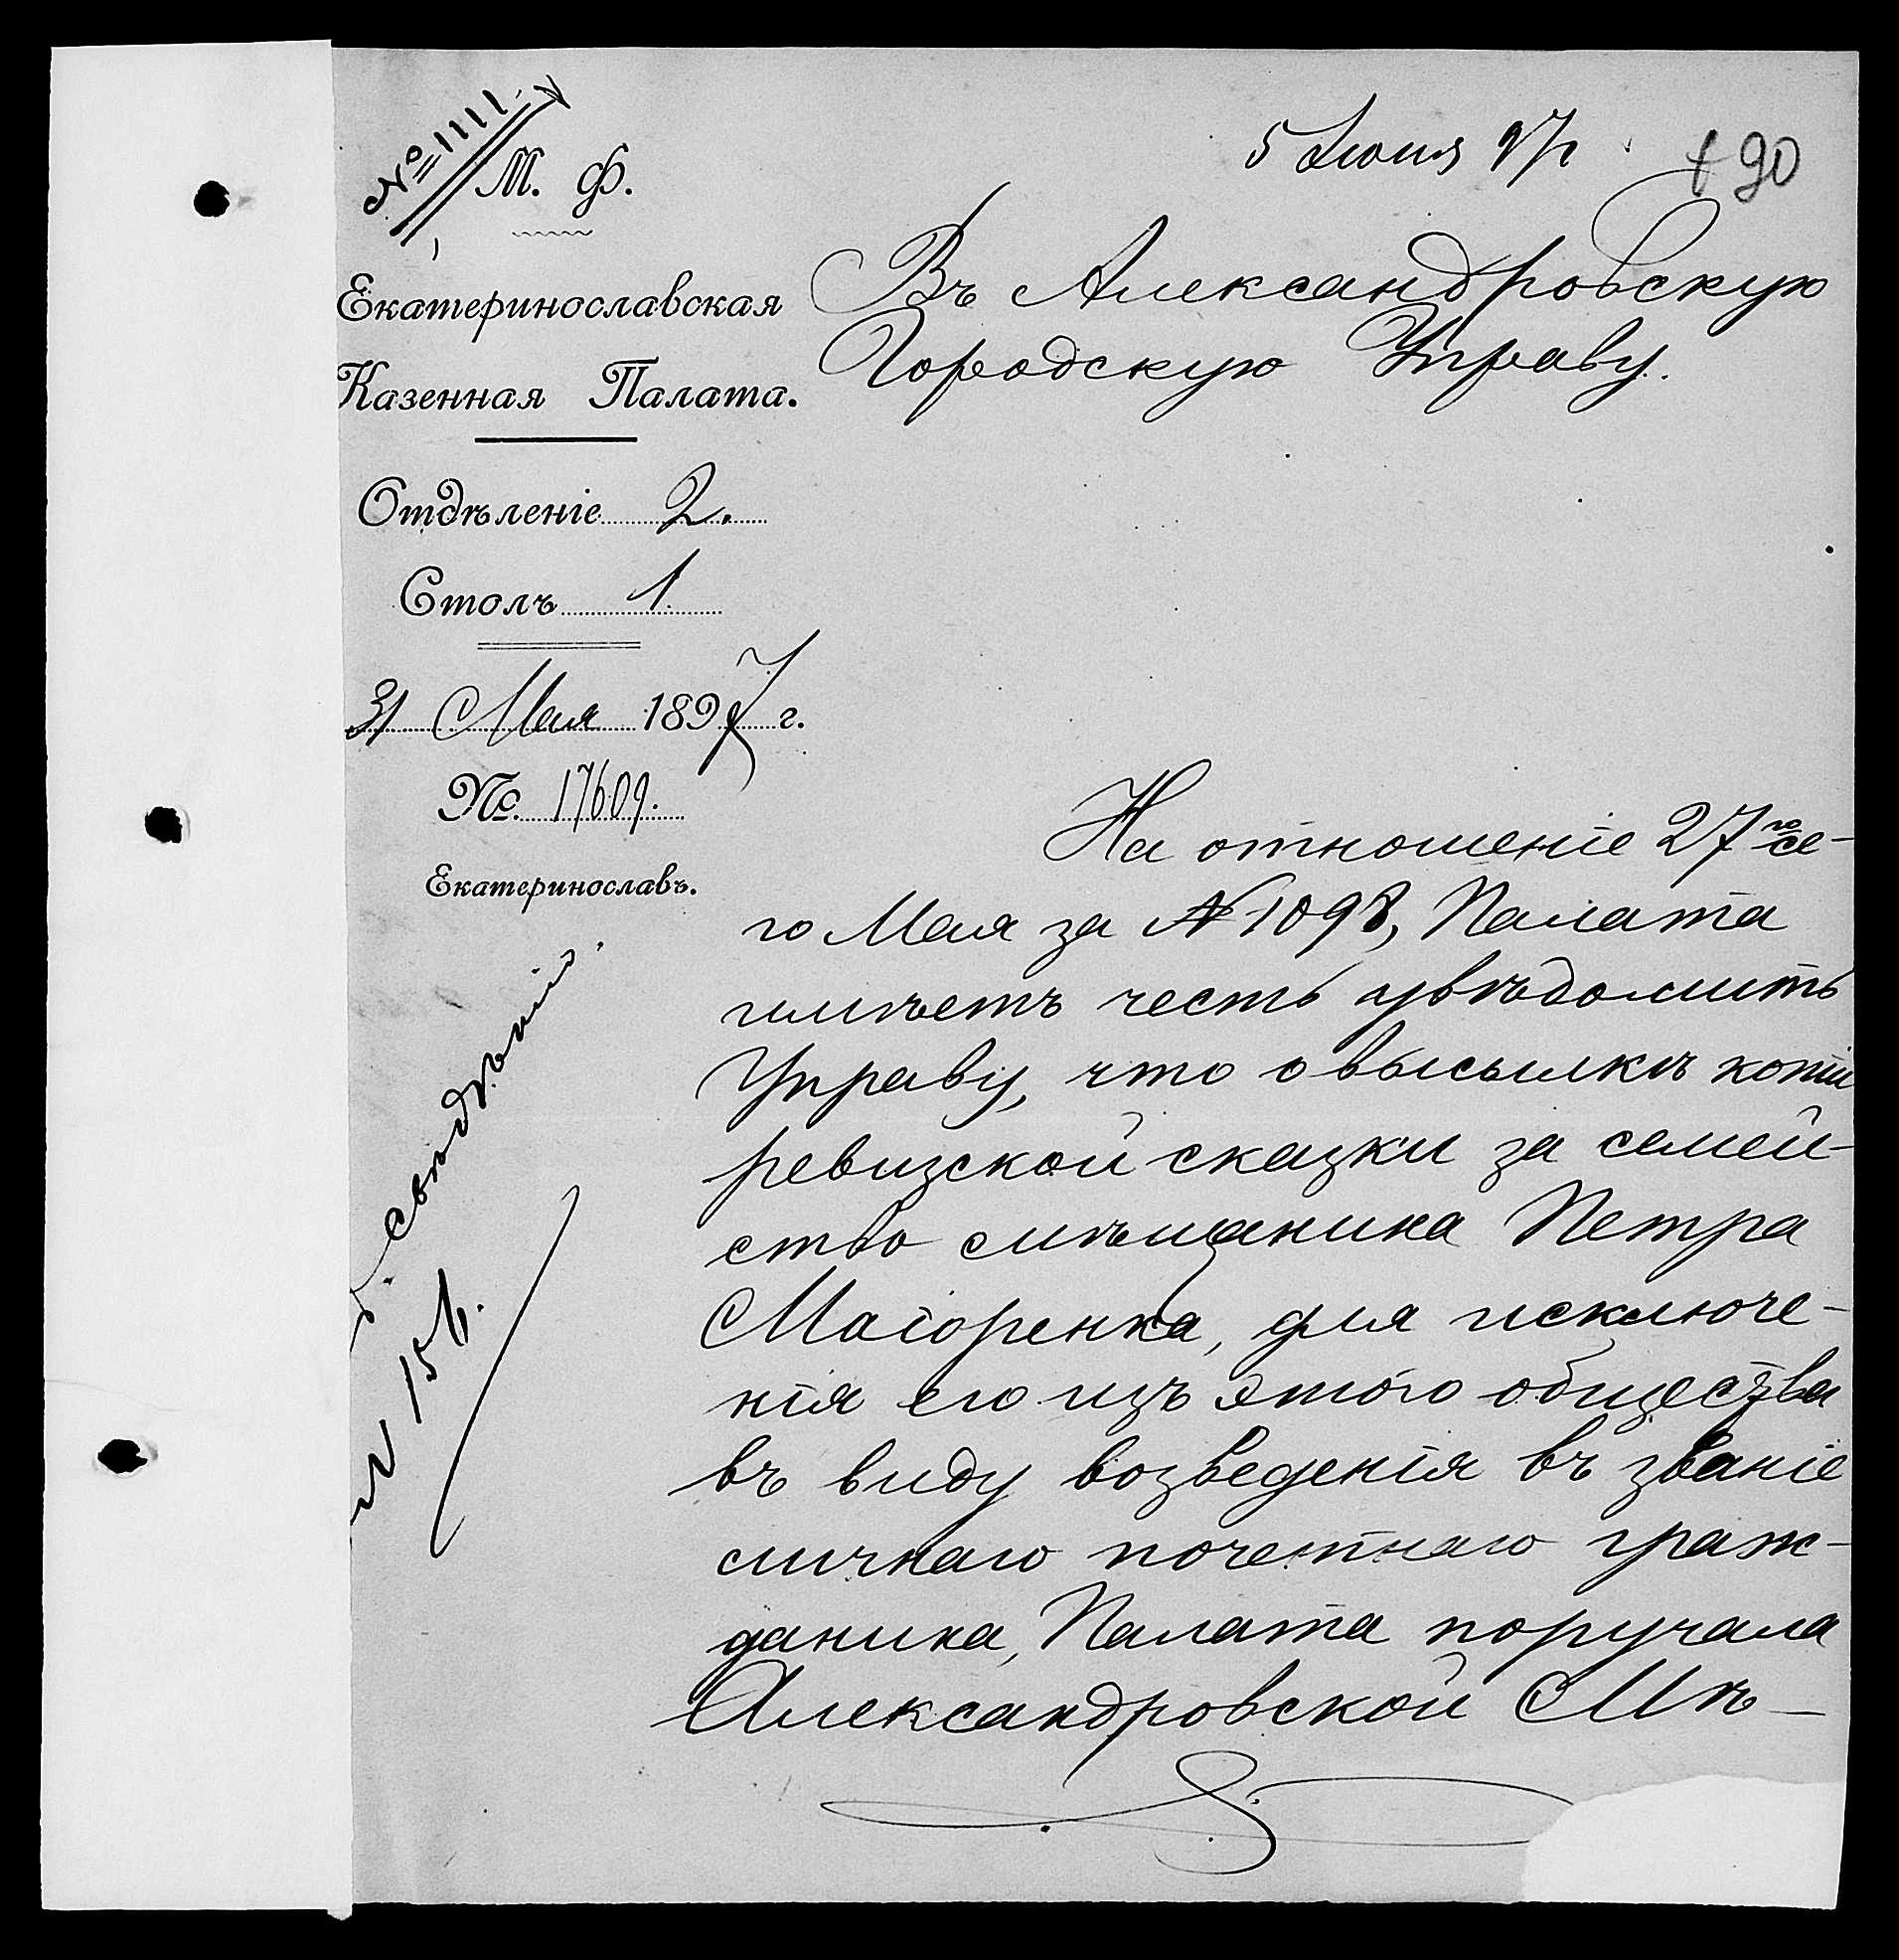 № 1111
5 Июня 97 г.
90
М. Ф.
Екатеринославская
Казенная Палата.
Отдѣленіе 2.
Столъ 1.
31 Мая 1897 г.
№ 17609.
Екатеринославъ.
Въ Александровскую
Городскую Управу.
На отношеніе 27го се-
го Мая за № 1098, Палата
имѣетъ честь увѣдомить
Управу, что о высылкѣ копіи
ревизской сказки за семей-
ство мѣщанина Петра
Маіоренка, для исключе-
нія его изъ этого общества
въ виду возведенія въ званіе
личнаго почетнаго граж-
данина, Палата поручала
Александровской Мѣ-
свѣдѣнію.